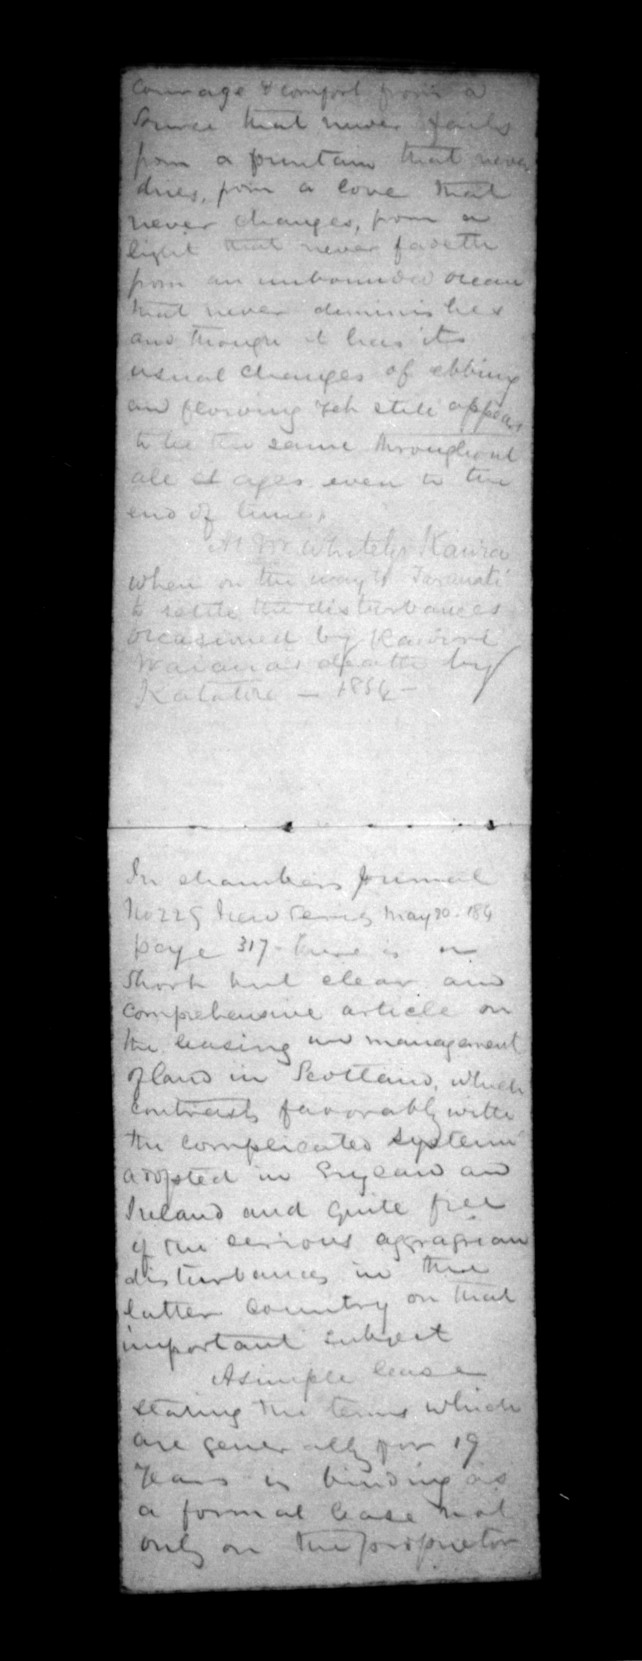 courage & comfort from a
Source that never fails
from a fountain that never
dries, from a love that
never changes, from a
light that never fadeth
from an unbounded ocean
that never diminishes
and though it has its
usual changes of ebbing
and flowing yet still appears
to be the same throughout
all ages even to the
end of time,
At Mr Whitelys Kawia
when on the way to Taranaki
to settle the disturbances
occasioned by Rawiri
Waiaua's death by
Katatore - 1854 -
In chambers Journal
No 229 New Series May 20. 184
page 317 - there is a
Short but clear and
comprehensive article on
the leasing and management
of land in Scotland, which
contrasts favorably with
the complicated system
adopted in England and
Ireland and quite free
of the serious aggragrian
disturbances in the
latter country on that
important subject
A simple lease
stating the terms which
are generally for 19
Years is binding as
a formal lease not
only on the proprietor